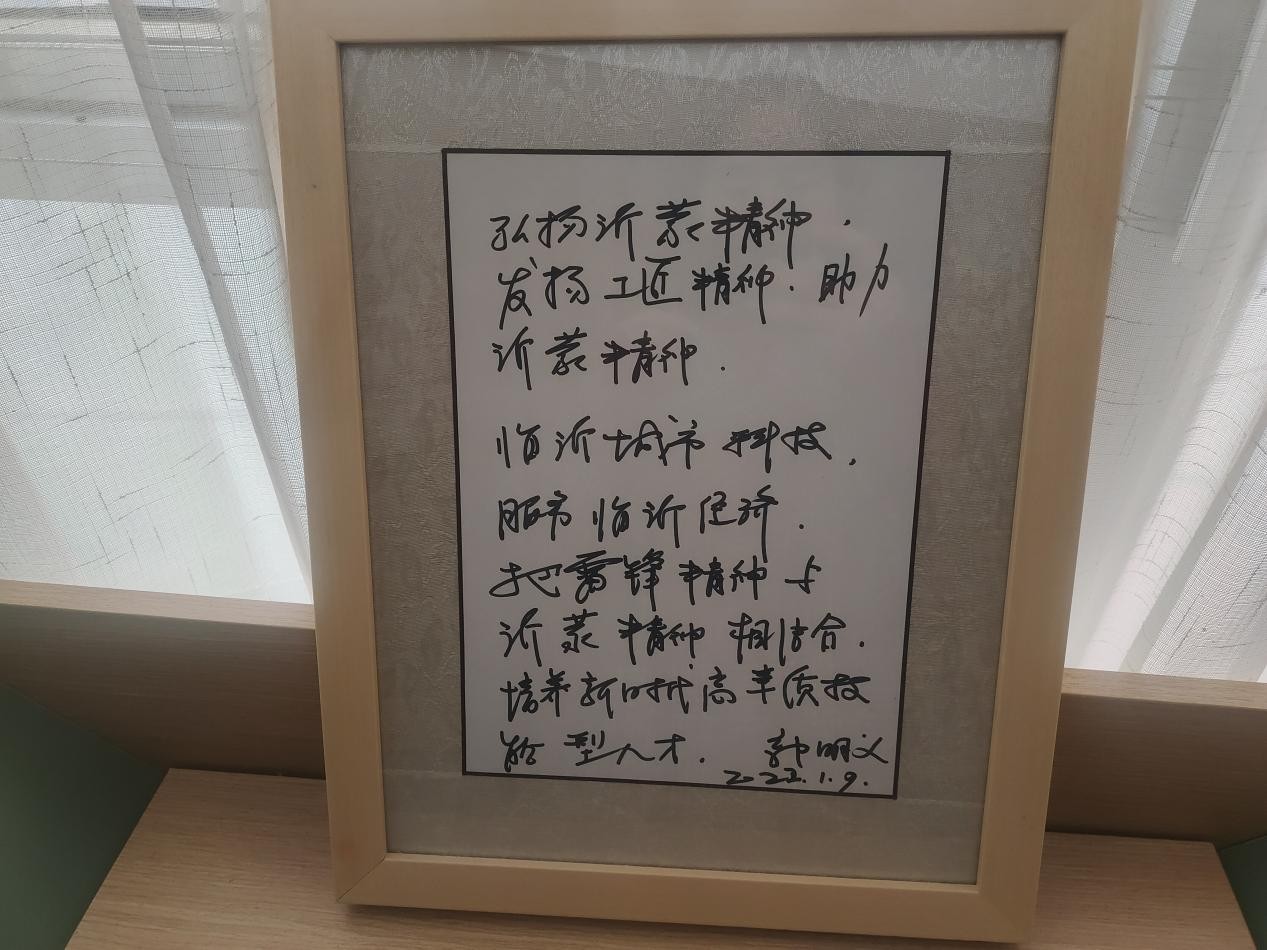 弘扬沂蒙精神.
发扬工匠精神.助力
沂蒙精神.
临沂城市科技.
服务临沂经济.
把雷锋精神与
沂蒙精神相结合.
培养新时代高素质技
能型人才. 郭明义
2022.1.9.